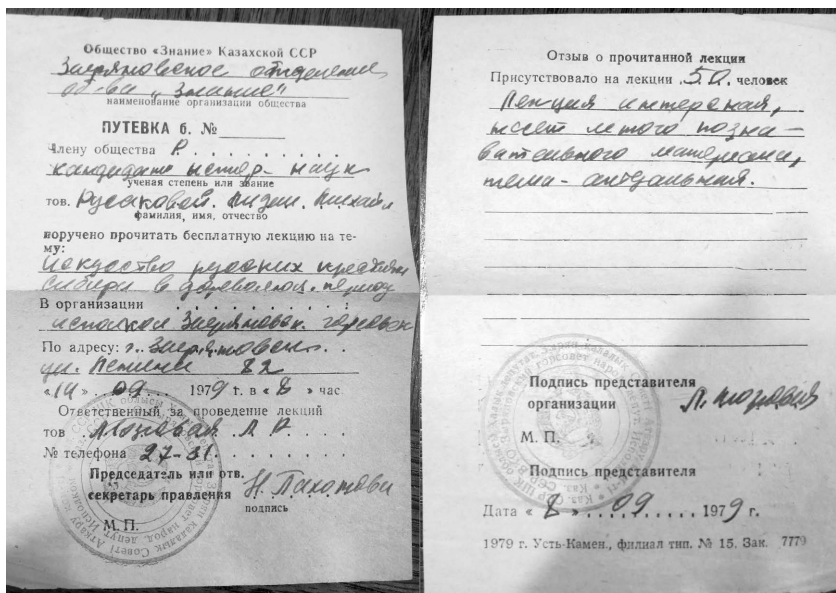 Общество «Знание» Казахской ССР
Зыряновское отделение
об-ва „Знание"
наименование организации общества
ПУТЕВКА б. №
Члену общества Р.
кандидат истор. наук
ученая степень или звание
тов. Русаковой. Лидии. Михайл
фамилия, имя, отчество
поручено прочитать бесплатную лекцию на те-
му:
Искусство русских крестьян
Сибири в дореволюц. период
В организации
исполком Зыряновск. горсовет
По адресу: г. Зыряновск
ул. Ленина 82
«14» 09 1979 г. в « 8 » час.
Ответственный за проведение лекций
тов Мозговая Л
№ телефона 27-31.
Председатель или отв.
секретарь правления
подпись
М. П.
Отзыв о прочитанной лекции
Присутствовало на лекции 50 человек
Лекция интересная,
несет много позна-
вательного материала,
тема - актуальная.
Подпись представителя
организации Л. Мозговая
М. П.
Подпись представителя
Дата « 8 » 09 1979 г.
1979 г. Усть-Камен., филиал тип. № 15. Зак. 7779